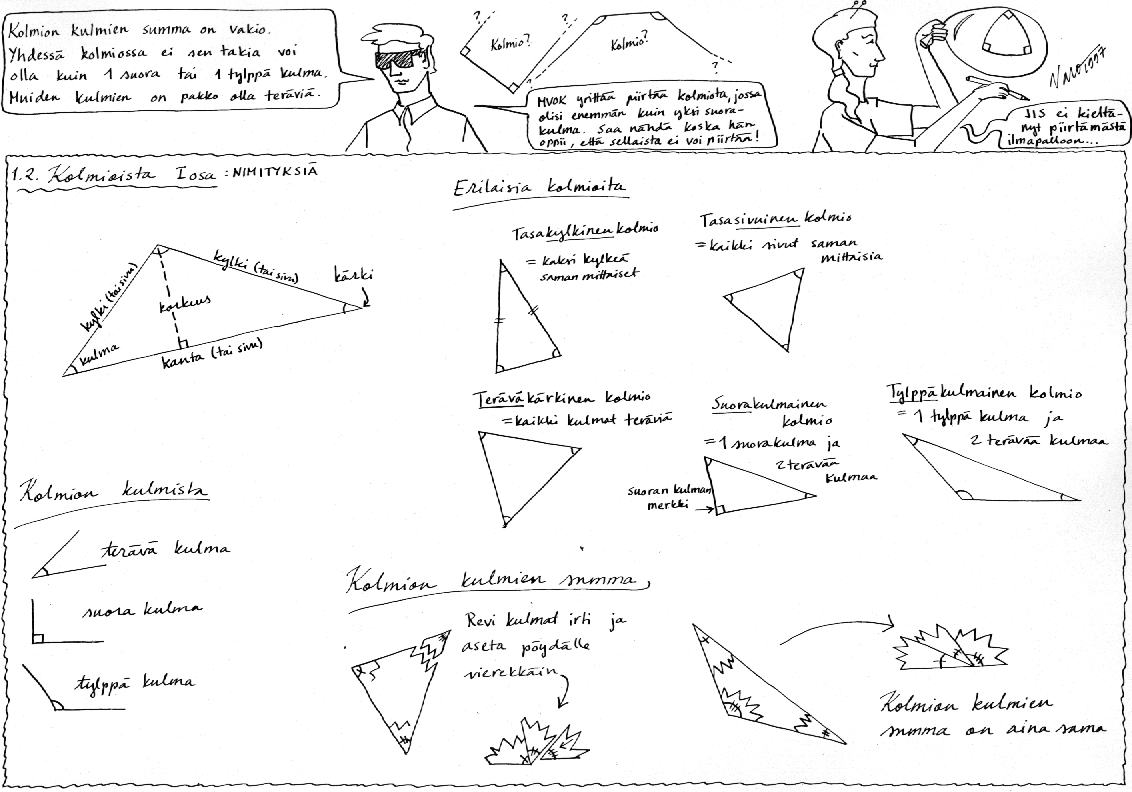 Kolmion kulmien summa on vakio.
Yhdessä kolmiossa ei sen takia voi
olla kuin 1 suora tai 1 tylppä kulma.
Muiden kulmien on pakko olla teräviä.
?
Kolmio?
?
?
Kolmio?
?
MVOK yrittää piirtää kolmiota, jossa
olisi enemmän kuin yksi suora-
kulma. Saa nähdä koska hän
oppii, että sellaista ei voi piirtää!
1997
JIS ei kieltä-
nyt piirtämästä
ilmapalloon...
1.2. Kolmioista I osa : NIMITYKSIÄ
kylki (tai sivu)
kylki (tai sivu)
kärki
korkeus
kulma
kanta (tai sivu)
Erilaisia kolmioita
Tasakylkinen kolmio
= kaksi kylkeä
saman mittaiset
Tasasivuinen kolmio
= kaikki sivut saman
mittaisia
Teräväkärkinen kolmio
= kaikki kulmat teräviä
Suorakulmainen
kolmio
= 1 suorakulma ja
2 terävää
kulmaa
Suoran kulman
merkki
Tylppäkulmainen kolmio
= 1 tylppä kulma ja
2 terävää kulmaa
Kolmion kulmista
terävä kulma
suora kulma
tylppä kulma
Kolmion kulmien summa
Revi kulmat irti ja
aseta pöydälle
vierekkäin
Kolmion kulmien
summa on aina sama